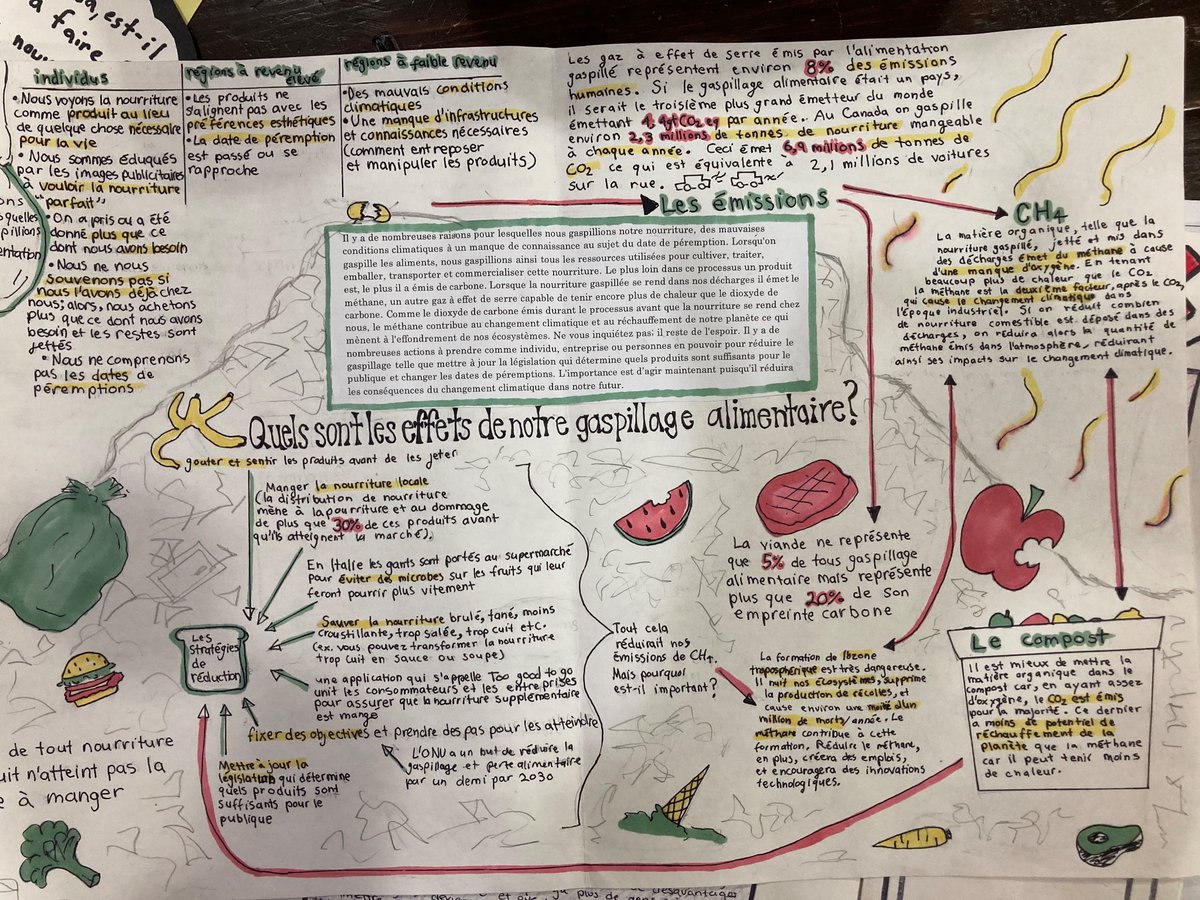 est-il
à faire
individus
• Nous voyons la nourriture
comme produit au lieu
de quelque chose nécessaire
pour la vie
• Nous sommes éduqués
par les images publicitaires
à vouloir la nourriture
parfait"
• On a pris ou a été
donné plus que ce
dont nous avons besoin
• Nous ne nous
souvenons pas si
nous l'avons déjà chez
nous; alors, nous achetons
plus que ce dont nous avons
besoin et les restes sont
jettés
• Nous ne comprenons
pas les dates de
péremptions
régions à revenu
élevé
• Les produits ne
s'alignent pas avec les
préférences esthétiques
• La date de péremption
est passé ou se
rapproche
régions à faible revenu
• Des mauvais conditions
climatiques
• Une manque d'infrastructures
et connaissances nécessaires
(comment entreposer
et manipuler les produits)
Les gaz à effet de serre émis par l'alimentation
gaspillé représentent environ 8% des émissions
humaines. Si le gaspillage alimentaire était un pays,
il serait le troisième plus grand émetteur du monde
émettant 4,4gtCO2 eq par année. Au Canada on gaspille
environ 2,3 millions de tonnes de nourriture mangeable
à chaque année. Ceci émet 6,9 millions de tonnes de
CO2 ce qui est équivalente à 2,1 millions de voitures
sur la rue.
Les émissions
CH4
La matière organique, telle que la
nourriture gaspillé, jetté et mis dans
des décharges émet du méthane à cause
d'une manque d'oxygène. En tenant
beaucoup plus de chaleur que le CO2
la méthane est la deuxième facteur, après le CO2,
qui cause le changement climatique dans
l'époque industriel. Si on réduit combien
de nourriture comestible est déposé dans des
décharges, on réduira alors la quantité de
méthane émis dans l'atmosphère, réduirant
ainsi ses impacts sur le changement climatique.
Il y a de nombreuses raisons pour lesquelles nous gaspillions notre nourriture, des mauvaises
conditions climatiques à un manque de connaissance au sujet du date de péremption. Lorsqu'on
gaspille les aliments, nous gaspillions ainsi tous les ressources utilisées pour cultiver, traiter,
emballer, transporter et commercialiser cette nourriture. Le plus loin dans ce processus un produit
est, le plus il a émis de carbone. Lorsque la nourriture gaspillée se rend dans nos décharges il émet le
méthane, un autre gaz à effet de serre capable de tenir encore plus de chaleur que le dioxyde de
carbone. Comme le dioxyde de carbone émis durant le processus avant que la nourriture se rend chez
nous, le méthane contribue au changement climatique et au réchauffement de notre planète ce qui
mènent à l'effondrement de nos écosystèmes. Ne vous inquiétez pas; il reste de l'espoir. Il y a de
nombreuses actions à prendre comme individu, entreprise ou personnes en pouvoir pour réduire le
gaspillage telle que mettre à jour la législation qui détermine quels produits sont suffisants pour le
publique et changer les dates de péremptions. L'importance est d'agir maintenant puisqu'il réduira
les conséquences du changement climatique dans notre futur.
Quels sont les effets de notre gaspillage alimentaire?
gouter et sentir les produits avant de les jeter
Manger la nourriture locale
(la distribution de nourriture
mène à la pourriture et au dommage
de plus que 30% de ces produits avant
qu'ils atteignent la marché).
En Italie les gants sont portés au supermarché
pour éviter des microbes sur les fruits qui leur
feront pourrir plus vitement
Sauver la nourriture brulé, fané, moins
croustillante, trop salée, trop cuit etc.
(ex. vous pouvez transformer la nourriture
trop cuit en sauce ou soupe)
une application qui s'appelle Too good to go
unit les consommateurs et les entreprises
pour assurer que la nourriture supplémentaire
est mangé
fixer des objectifs et prendre des pas pour les atteindre
L'ONU a un but de réduire la
gaspillage et perte alimentaire
par un demi par 2030
Les
Stratégies
de
réduction
Mettre à jour la
législation qui détermine
quels produits sont
suffisants pour le
publique
de tout nourriture
uit n'atteint pas la
e à manger
Tout cela
réduirait nos
émissions de CH4.
Mais pourquoi
est-il important?
La viande ne représente
que 5% de tous gaspillage
alimentaire mais représente
plus que 20% de son
empreinte carbone
La formation de l'ozone
troposphérique est très dangereuse.
Il nuit nos écosystèmes, supprime
la production de récoltes, et
cause environ une moitié d'un
million de morts/année. Le
méthane contribue à cette
formation. Réduire le méthane,
en plus, créera des emplois,
et encouragera des innovations
technologiques.
Le compost
Il est mieux de mettre la
matière organique dans le
compost car, en ayant assez
d'oxygène, le CO2 est émis
pour la majorité. Ce dernier
a moins de potentiel de
réchauffement de la
planète que la méthane
car il peut tenir moins
de chaleur.